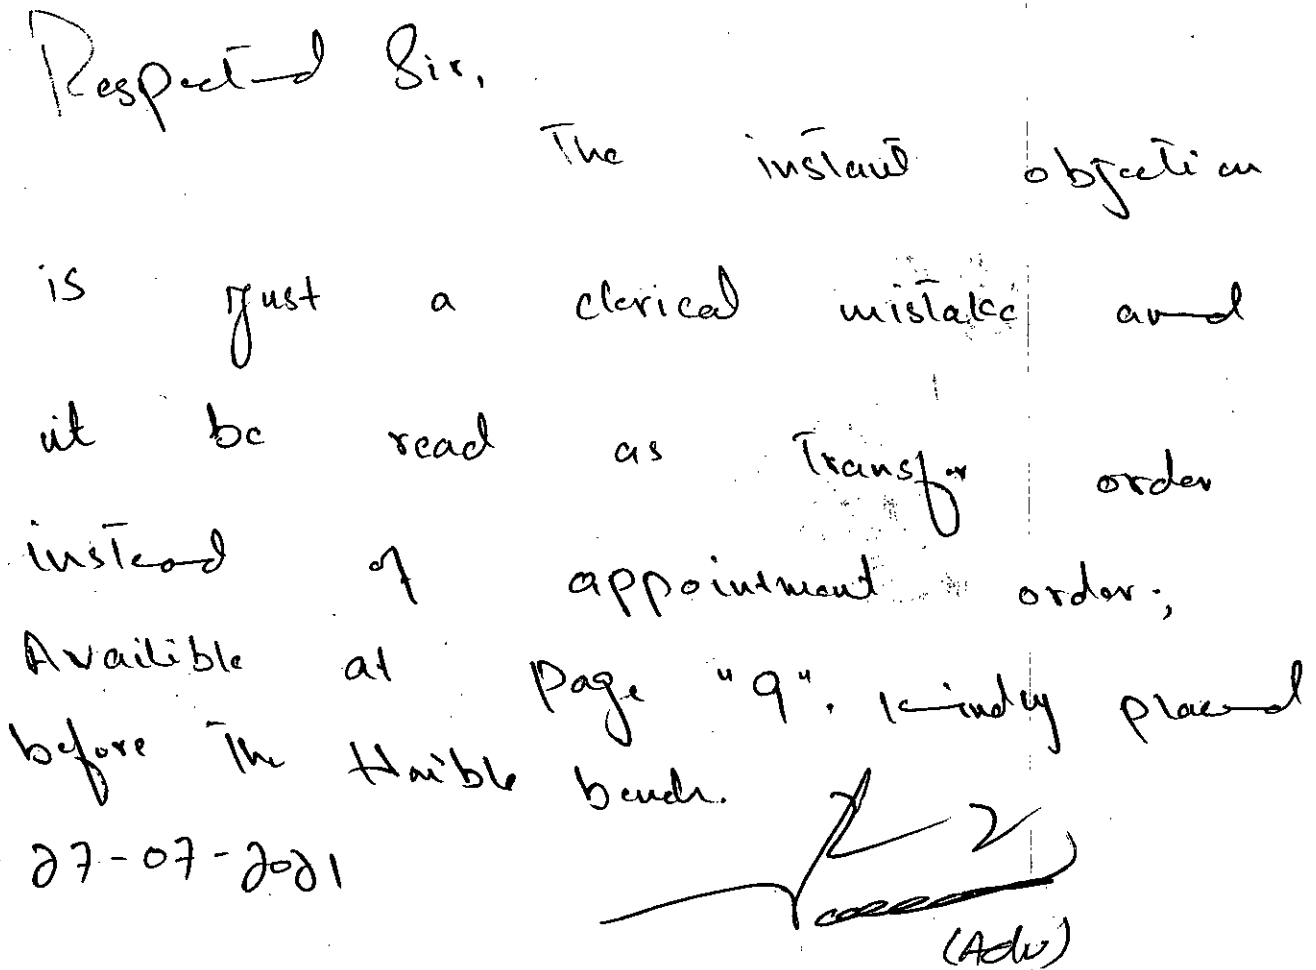 Respected Sir,
The instant objection
is just a clerical mistake and
it be read as Transfer order
instead of appointment order;
Availible at Page "9". kindly placed
before The Hon'ble bench.
27-07-2021
(Adv)